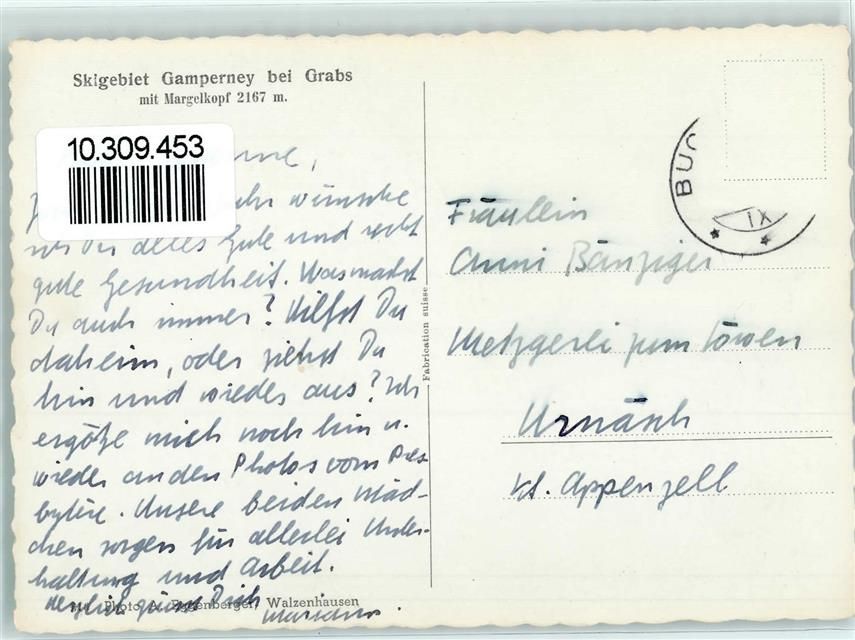 Skigebiet Gamperney bei Grabs
mit Margelkopf 2167 m.
10.309.453
wünsche
wir Dir alles Gute und recht
gute Gesundheit. Was machst
Du auch immer? Hilfst Du
daheim, oder ziehst Du
hin und wieder aus? Ich
ergötze mich noch hin u.
wieder an den Photos vom Pres-
bytère. Unsere beiden Mäd-
chen sorgen für allerlei Unter-
haltung und Arbeit.
Herzlich grüsst Dich
Photo Eggenberger, Walzenhausen
Fabrication suisse
BUC
IX
Fräullein
Anni Bänziger
Metzgerei zum Löwen
Urnäsch
Kt. Appenzell